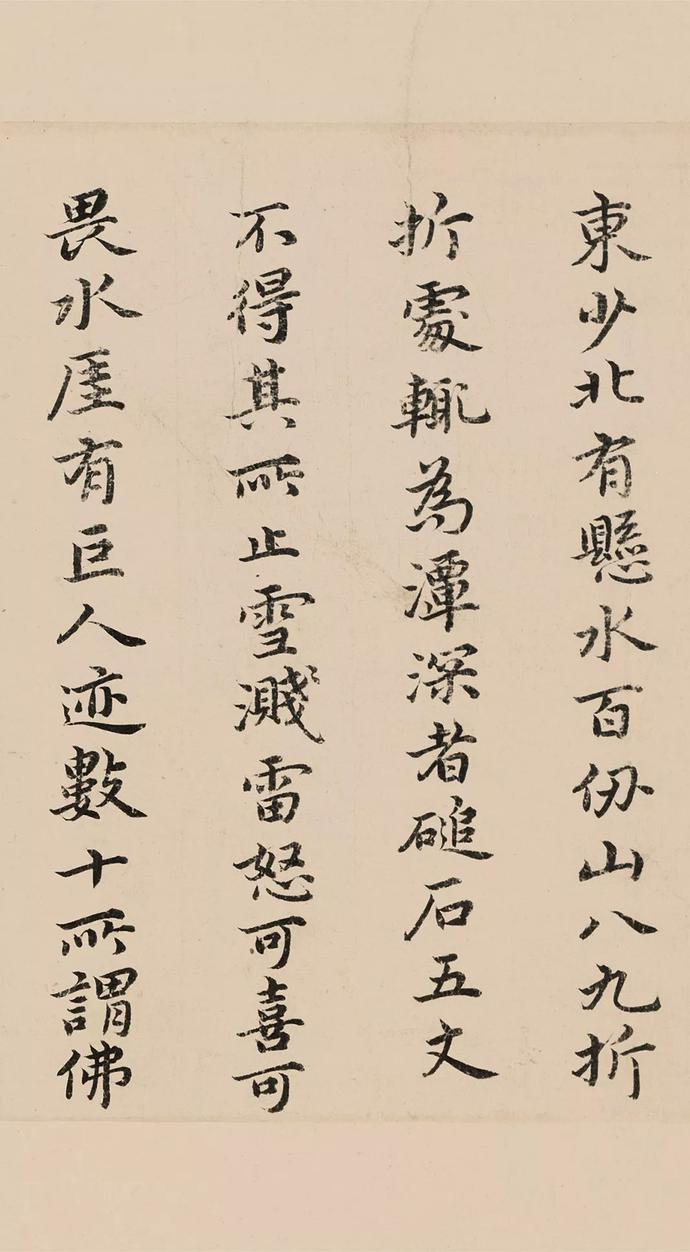 東少北有懸水百仞山八九折
折處輙為潭深者磓石五丈
不得其所止雪濺雷怒可喜可
畏水厓有巨人迹數十所謂佛